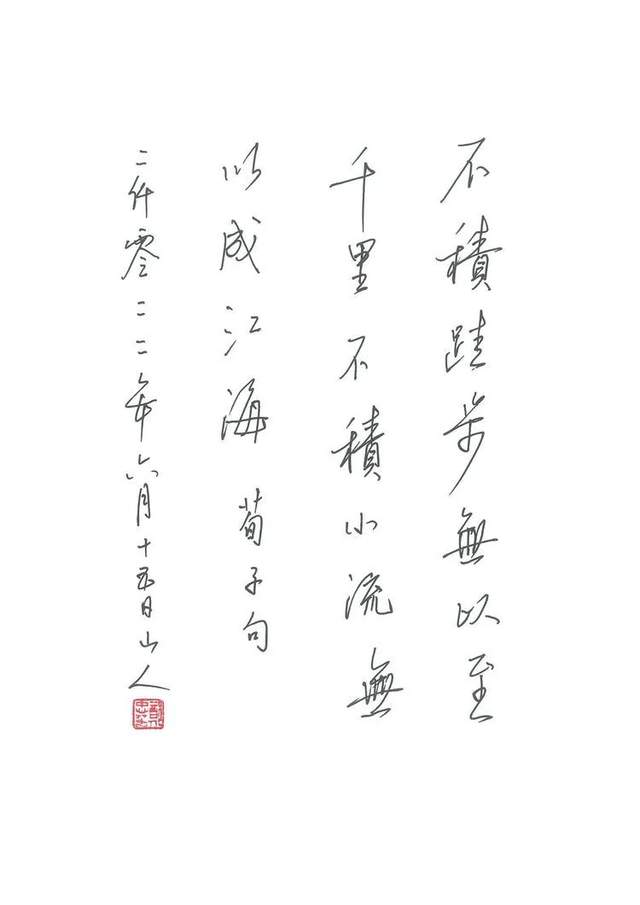 不積跬步無以至
千里不積小流無
以成江海 荀子句
二仟零二二年六月十五日山人